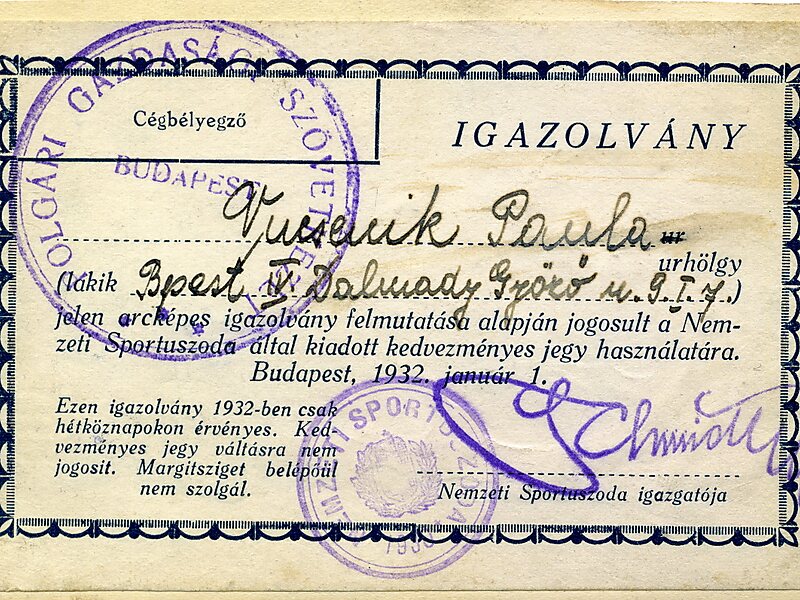 Cégbélyegző
IGAZOLVÁNY
POLGÁRI GAZDASÁGI SZÖVETKEZET
BUDAPEST
Paula ur
urhölgy
(lakik Bpest IV. Dalmady Győző u. 9. I. 7.)
jelen arcképes igazolvány felmutatása alapján jogosult a Nem-
zeti Sportuszoda által kiadott kedvezményes jegy használatára.
Budapest, 1932. január 1.
Ezen igazolvány 1932-ben csak
hétköznapokon érvényes. Ked-
vezményes jegy váltásra nem
jogosit. Margitsziget belépőül
nem szolgál.
NEMZETI SPORTUSZODA
Nemzeti Sportuszoda igazgatója